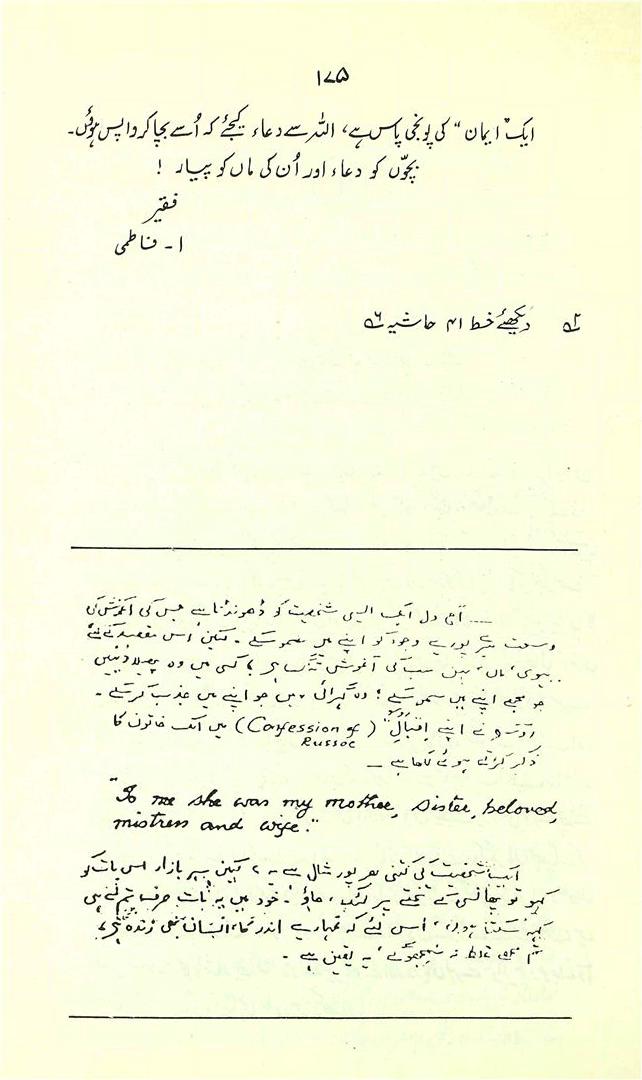 ۱۷۵
ایک "ایمان" کی پونجی پاس ہے، اللہ سے دعاء کیجئے کہ اُسے بچا کر واپس ہوئیں۔
بچّوں کو دعاء اور اُن کی ماں کو پیار !
فقیر
ا۔ فاطمی
۲؎ دیکھئے خط ۴۱ حاشیہ ۶؎
آج دل ایک ایسی شخصیت کو ڈھونڈتا ہے جس کی آغوش کی
وسعت میرے پورے وجود کو اپنے میں سمو سکے ۔ لیکن اس مقصد کے لئے
بیوی، ماں، بہن سب کی آغوش تنگ ہے، کسی میں وہ پھیلاؤ نہیں
جو مجھے اپنے میں سمو سکے ! وہ گہرائی نہیں جو اپنے میں جذب کر سکے ۔
روسو نے اپنے "اقبال" (Confession of Russoe) میں ایک خاتون کا
ذکر کرتے ہوئے لکھا ہے —
"To me she was my mother, sister, beloved,
mistress and wife."
ایک شخصیت کی کتنی بھرپور مثال ہے یہ ؟ لیکن سرِ بازار اس بات کو
کہو تو پھانسی کے تختے پر لٹک جاؤ ۔ خود میں یہ بات صرف تم سے ہی
کہہ سکتا ہوں، اس لئے کہ تمہارے اندر کا انسان ابھی زندہ ہے،
تم مجھے غلط نہ سمجھو گے، یہ یقین ہے ۔